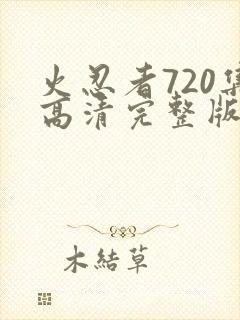 火忍者720集
高清完整版
木結草